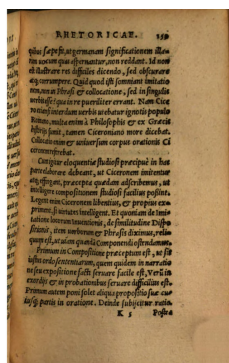 RHETORICAE. 159
quòd sæpe fit, ut germanam significationem illa-
rum vocum quas usurpantur, non reddant. Id non
est illustrare res difficiles dicendo, sed obscurare
atq; corrumpere. Quid quod isti somniant imitatio-
nem, non in Phrasi & collocatione, sed in singulis
verbis esse? qua in re pueriliter errant. Nam Cice
ro etiam interdum verbis utebatur ignotis populo
Romano, multa enim à Philosophis & ex Græcis
historijs sumit, tamen Ciceroniano more dicebat.
Collocatio enim & universum corpus orationis Ci
ceronem referebat.
Cum igitur eloquentiæ studiosi præcipuè in hac
parte elaborare debeant, ut Ciceronem imitentur
atq; effingant, præcepta quædam adscribemus, ut
intelligere compositionem studiosi facilius possint.
Legent enim Ciceronem libentius, & propius ex-
priment, si unitatem intelligent. Et quoniam de Imi-
tatione locorum Inventionis, de similitudine Dispo
sitionis, item verborum & Phrasis diximus, reli-
quum est, ut viam quandā Componendi ostendamus.
Primum in Compositione præceptum est, ut sit
iustus ordo sententiarum, quem quidem in narratio
ne seu expositione facti servare facile est, Verū in
exordijs & in probationibus servare difficilius est.
Primum autem poni solet aliqua propositio sive cu-
iusq; partis in oratione. Deinde subijcitur ratio.
K 5 Postea